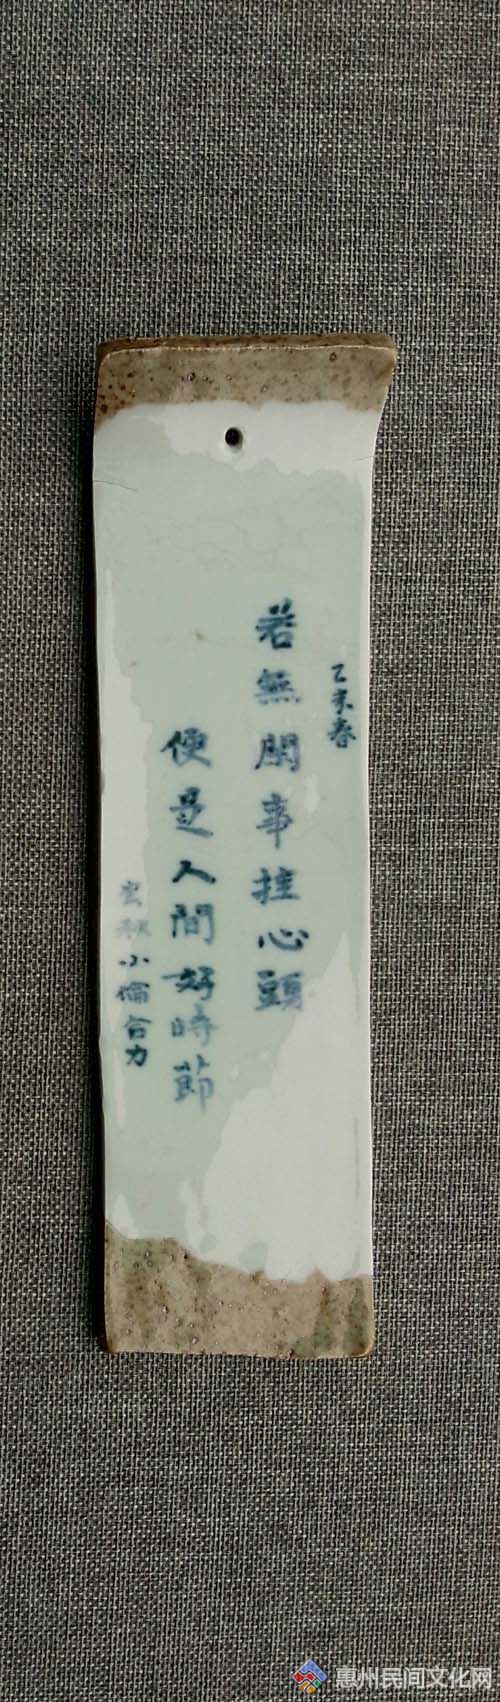 乙未春
若無閑事挂心頭
便是人間好時節
小倫合力
惠州民间文化网